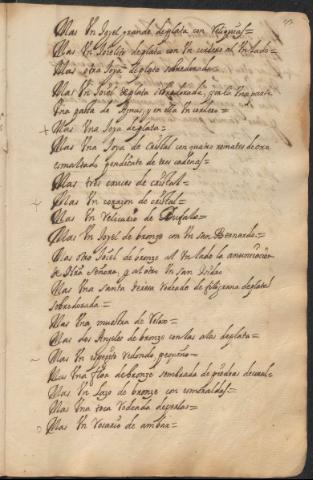 Mas Un Joyel grande de plata con Reliquias=
Mas Un Joielito de plata con Un cordero al Un lado=
Mas otra Joya de plata sobredorada=
Mas Un Joiel de plata sobredorada, por la Una parte
Una garra de y en la Un cordero=
Mas Una Joya de plata=
Mas Una Joya de cristal con quatro remates de oro
esmaltado pendiente de tres cadenas=
Mas tres cruces de cristal=
Mas Un corazon de cristal=
Mas Un Relicario de Bufalo=
Mas Un Joyel de bronze con Un san Bernardo=
Mas otro Joiel de bronze al Un lado la anunciacion
de Nra señora, y al otro Un san Isidro
Mas Una santa rodeado de filigrana de plata
sobredorada=
Mas Una muestra de Relox=
Mas dos Angeles de bronze con las alas de plata=
Mas Un espejito redondo pequeño=
Mas Una flor de bronze sembrada de piedras
Mas Un lazo de bronze con esmeraldas=
Mas Una rosa Rodeada de perlas=
Mas Un Rosario de ambar=